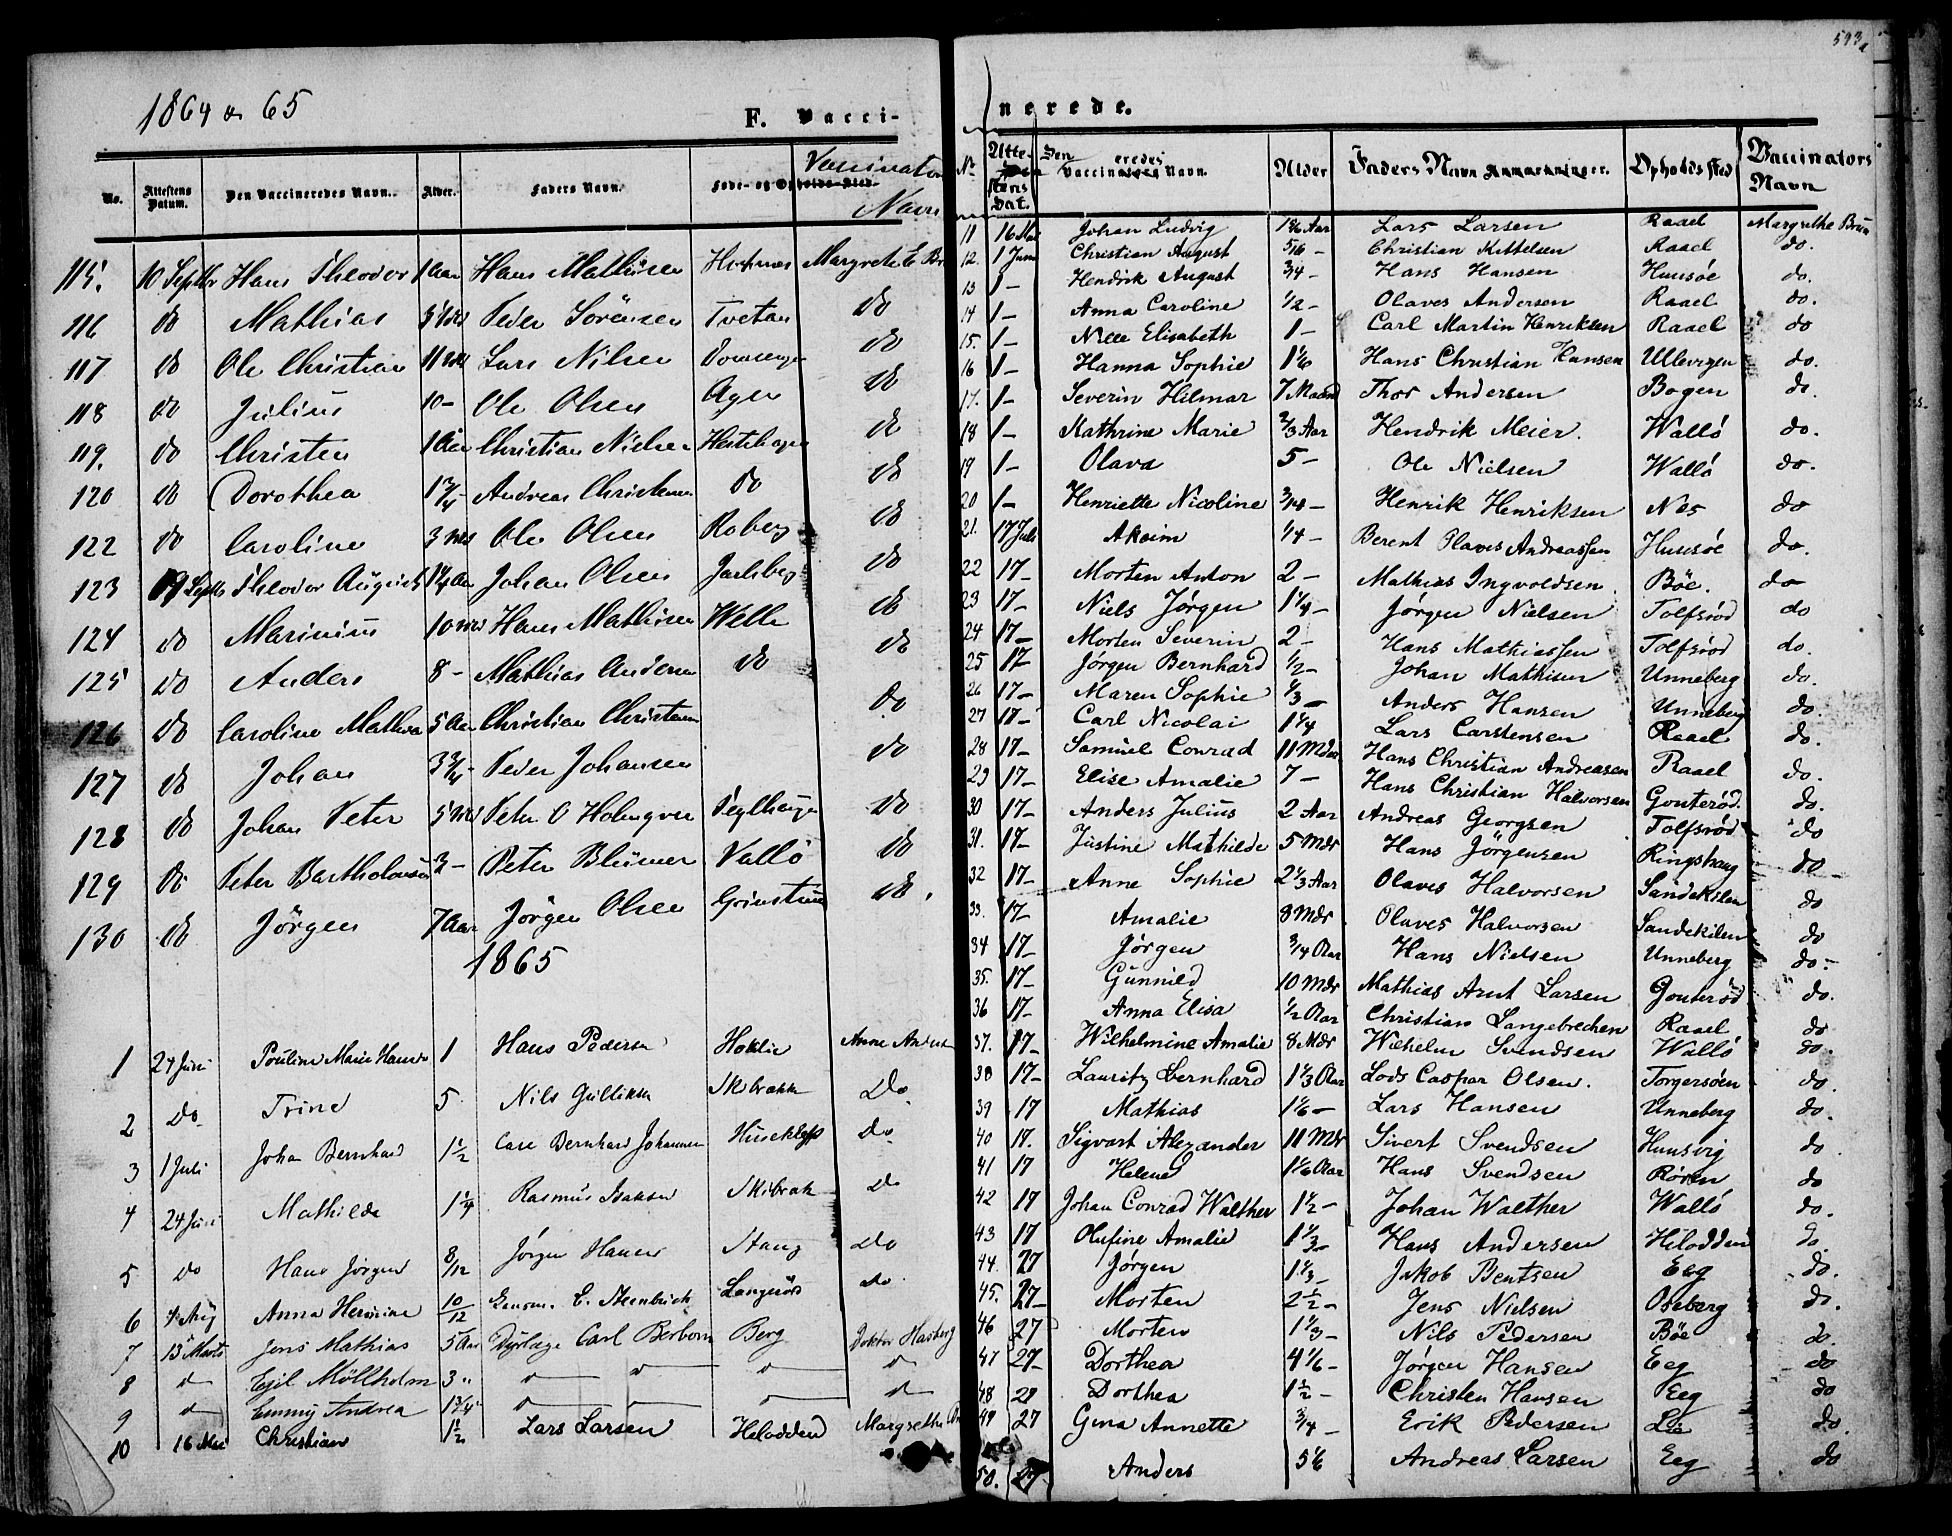 1864 & 65
F. Vacci-
Vaccinators Navn
No. Attestens Datum. Den Vaccineredes Navn. Alder. Faders Navn. Føde- og Opholds-Sted.
115. 10 Septbr Hans Theodor 1 Aar Hans Mathisen Margrete E. Br
116 do Mathias 5 Mdr Peder Sörensen Tvetan do
117 do Ole Christian 11 Mdr Lars Nilsen do
118 do Julius 10 - Ole Olsen Agen do
119. do Christen 1 Aar Christian Nielsen Hestehagen do
120 do Dorothea 1 3/4 - Andreas Christensen do do
122 do Caroline 3 Mdr Ole Olsen Roberg do
123 19 Septbr Theodor August 1 1/4 Aar Johan Olsen Jarlsberg do
124 do Marinius 10 Mdr Hans Mathisen Welle do
125 do Anders 8 - Mathias Andersen do do
126 do Caroline Mathea 5 Aar Christian Christensen do
127 do Johan 3 3/4 - Peder Johansen do
128 do Johan Peter 5 Mdr Peter O Holmqver Teglhaugen do
129 do Peter Bartholomæus 3 - Peter Blumer Vallö do
130 do Jörgen 7 Aar Jörgen Olsen Grinstuen do.
1865
1 24 Juni Pouline Marie Hansen 1 Hans Pedersen Anne Anders
2 do Trine 5 Nils Gulliksen Skibrækk Do
3 1 Juli Johan Bernhard 1 1/2 Carl Bernhard Johannsen Huseklep Do
4 24 Juni Mathilde 1 1/4 Rasmus Isaksen Skibræk Do
5 do Hans Jørgen 8/12 Jørgen Hansen Stang Do
6 4 Aug Anna Hermine 10/12 C. Steenbuch do.
7 13 Marts Jens Mathias 5 Aar Dyrlæge Carl Berborn Berg Doktor Hasberg
8 " Egil Möllholm 3 " " " "
9 " Emmy Andrea 1 3/4 " " "
10 16 Mai Christian 1 1/2 Lars Larsen Helodden Margrethe
593
nerede.
Nr Attestens Dat. Den Vaccineredes Navn. Alder Faders Navn Anmærkninger. Opholdssted Vaccinators Navn
11 16 Mai Johan Ludvig 1 5/6 Aar Lars Larsen Raael Margrethe Brun
12. 1 Juni Christian August 5/6 - Christian Kittelsen Raael do.
13 1 - Hendrik August 3/4 - Hans Hansen Husøe do.
14 1 - Anna Caroline 1/2 - Olaves Andersen Raael do.
15. 1 - Nelle Elisabeth 1 - Carl Martin Henriksen Raael do
16 1 - Hanna Sophie 1 1/6 Hans Christian Hansen Ullevigen do.
17. 1 - Severin Hilmar 7 Maaned Thor Andersen Bogen do.
18 1 - Kathrine Marie 2/3 Aar Hendrik Meier. Walló do.
19 1 - Olava 5 - Ole Nielsen Walló do.
20 1 - Henriette Nicoline 3/4 - Henrik Henriksen Nes do
21. 17 Juli Akeim 1/4 - Berent Olaves Andreassen Husøe do.
22 17 - Morten Anton 2 - Mathias Ingvoldsen. Bøe. do
23 17 - Niels Jørgen 1 1/4 - Jørgen Nielsen Tolfsrød do
24 17 - Morten Severin 2 - Hans Mathiassen Tolfsrød do.
25 17 Jørgen Bernhard 1/2 - Johan Mathisen Unneberg do.
26 17 - Maren Sophie 1/3 - Anders Hansen Unneberg do.
27 17 - Carl Nicolai 1 1/4 Lars Carstensen Raael do.
28 17 - Samuel Conrad 11 Mdr Hans Christian Andreasen Raael do.
29 17 - Elise Amalie 7 - Hans Christian Halvorsen Gonterød do.
30 17 - Anders Julius 2 Aar Andreas Georgsen Tolfsrød do
31. 17 - Justine Mathilde 5 Mdr Hans Jørgensen Ringshaug do
32 17 - Anne Sophie 2 1/3 Aar Olaves Halvorsen Sandekilen do
33. 17 - Amalie 8 Mdr Olaves Halvorsen Sandekilen do
34 17 - Jørgen 3/4 Aar Hans Nielsen Unneberg do.
35. 17 - Gunnild 10 Mdr Mathias Arnt Larsen Gonterød do.
36 17 - Anna Elisa 1/2 Aar Christian Langebrechen Raael do
37. 17 - Wilhelmine Amalie 8 Mdr Wilhelm Svendsen Walló do.
38 17 - Lauritz Bernhard 1 1/3 Aar Lods Caspar Olsen. Torgersøen do.
39 17 Mathias 1 1/6 - Lars Hansen Unneberg do.
40 17. Sigvart Alexander 11 Mdr Sivert Svendsen Hunsvig do
41 17 Helene 1 1/6 Aar Hans Svendsen Røren do
42 17 Johan Conrad Walther 1 1/2 - Johan Walther Walló do.
43 17 Olufine Amalie 1 1/3 - Hans Andersen Helodden do
44. 27 Jørgen 1 1/3 - Jakob Bentsen Eeg do.
45. 27 - Morten 2 1/2 - Jens Nielsen Oseberg do.
46 27 Morten 1 1/3 - Nils Pedersen Bøe do.
47 27 - Dorthea 4 1/6 - Jørgen Hansen Eeg do
48 29 Dorthea 1 1/2 - Christen Hansen Eeg do
49 27 Gina Annette 3/4 - Erik Pedersen Lie do.
50. 27 Anders 5/6 Andreas Larsen Eeg do